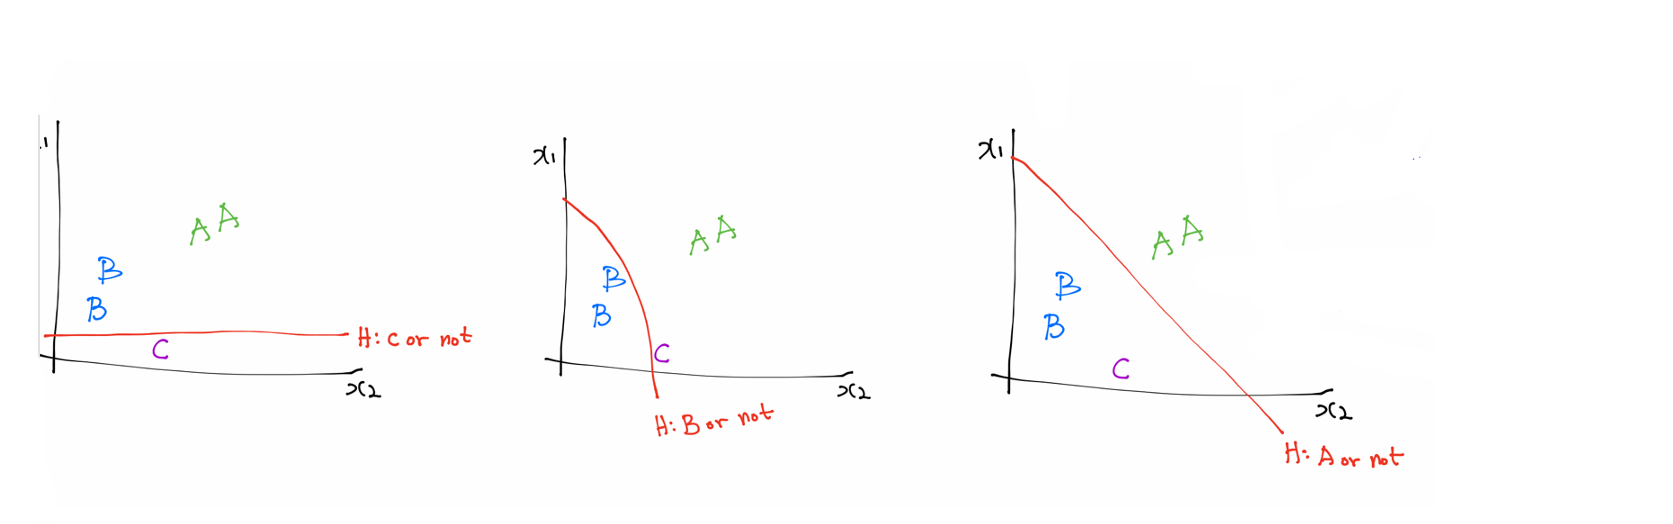 .1
A A
B
B
H: C or not
C
x2
x1
A A
B
B
C
x2
H: B or not
x1
A A
B
B
C
x2
H: A or not